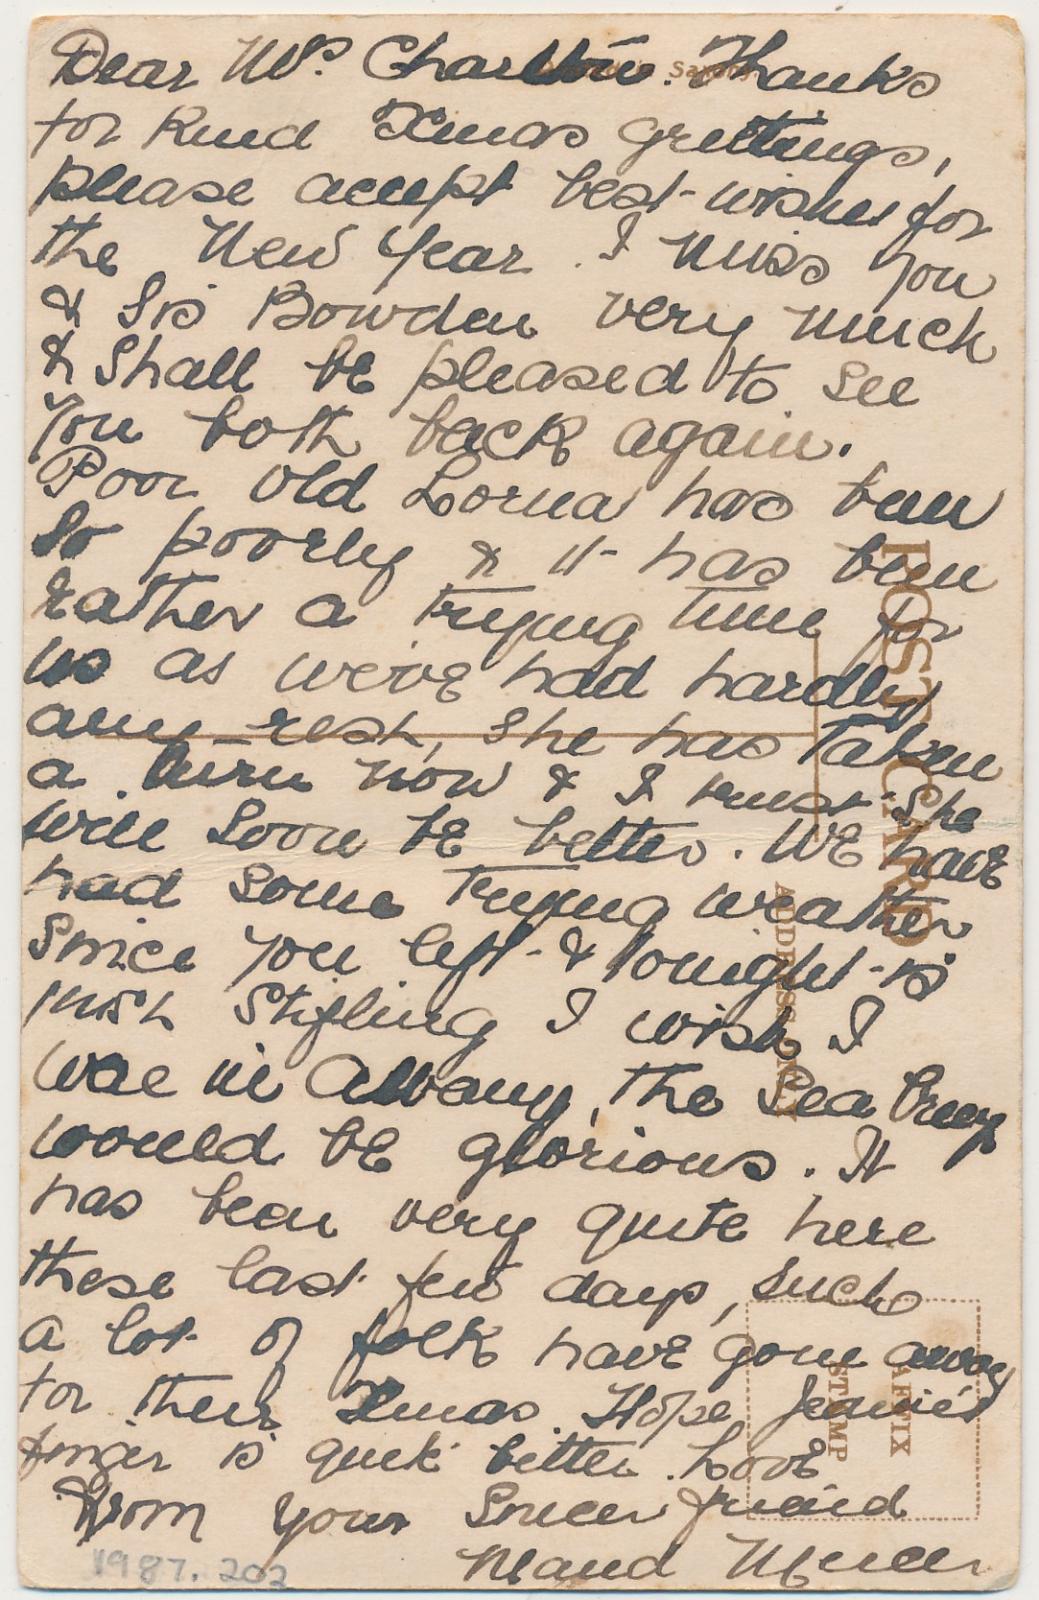 Dear Mrs. Charlton. Thanks
for kind Xmas greetings,
please accept best wishes for
the New Year. I miss you
& Sis Bowden very much
& shall be pleased to see
you both back again.
Poor old Lorna has been
so poorly & it has been
rather a trying time for
us as we've had hardly
any rest, she has taken
a turn now & I trust she
will soon be better. We have
had some trying weather
since you left & tonight is
just stifling I wish I
was in Albany, the sea breeze
would be glorious. It
has been very quite here
these last few days, such
a lot of folk have gone away
for their Xmas. Hope Jeanie's
finger is quite better. Love
from your sincere friend
Maud
1987.202
POST CARD
ADDRESS ONLY
AFFIX
STAMP